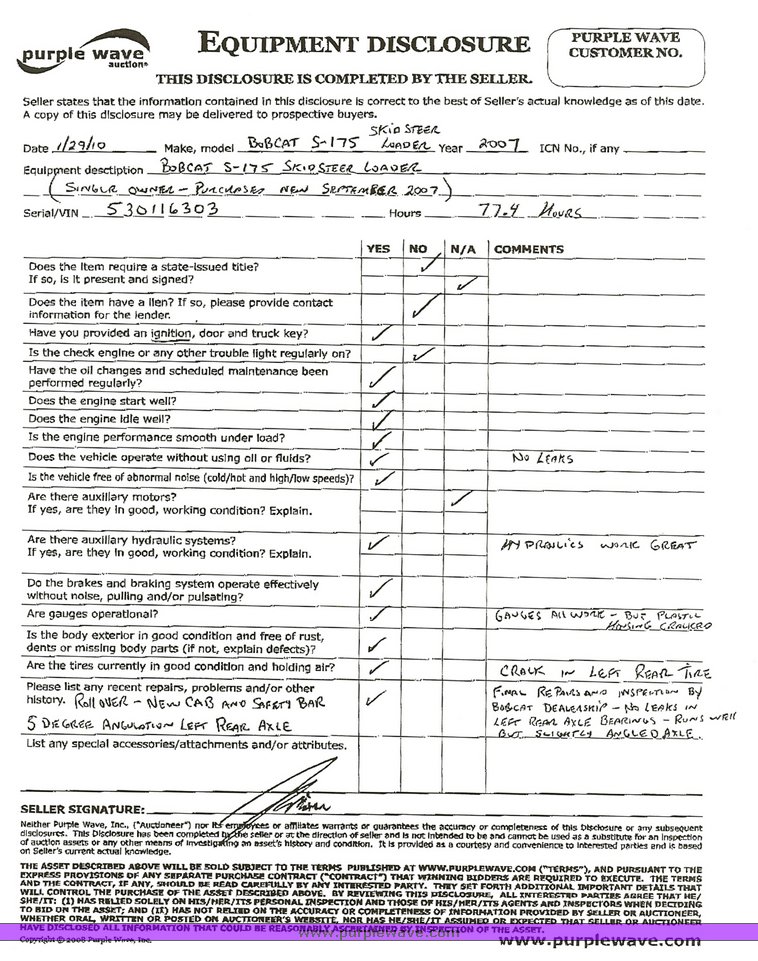 purple wave
auction®
EQUIPMENT DISCLOSURE
PURPLE WAVE
CUSTOMER NO.
THIS DISCLOSURE IS COMPLETED BY THE SELLER.
Seller states that the information contained in this disclosure is correct to the best of Seller's actual knowledge as of this date.
A copy of this disclosure may be delivered to prospective buyers.
Date 1/29/10 Make, model BOBCAT S-175 SKIDSTEER LOADER Year 2007 ICN No., if any
Equipment description BOBCAT S-175 SKIDSTEER LOADER
(SINGLE OWNER - PURCHASED NEW SEPTEMBER 2007)
Serial/VIN 530116303 Hours 77.4 HOURS
YES NO N/A COMMENTS
Does the item require a state-issued title? ✓
If so, is it present and signed? ✓
Does the item have a lien? If so, please provide contact
information for the lender. ✓
Have you provided an ignition, door and truck key? ✓
Is the check engine or any other trouble light regularly on? ✓
Have the oil changes and scheduled maintenance been
performed regularly? ✓
Does the engine start well? ✓
Does the engine idle well? ✓
Is the engine performance smooth under load? ✓
Does the vehicle operate without using oil or fluids? ✓ NO LEAKS
Is the vehicle free of abnormal noise (cold/hot and high/low speeds)? ✓
Are there auxiliary motors? ✓
If yes, are they in good, working condition? Explain.
Are there auxiliary hydraulic systems? ✓ HYDRAULICS WORK GREAT
If yes, are they in good, working condition? Explain.
Do the brakes and braking system operate effectively
without noise, pulling and/or pulsating? ✓
Are gauges operational? ✓ GAUGES ALL WORK - BUT PLASTIC
HOUSING CRACKED
Is the body exterior in good condition and free of rust,
dents or missing body parts (if not, explain defects)? ✓
Are the tires currently in good condition and holding air? ✓ CRACK IN LEFT REAR TIRE
Please list any recent repairs, problems and/or other
history. ROLLOVER - NEW CAB AND SAFETY BAR ✓
5 DEGREE ANGULATION LEFT REAR AXLE
FINAL REPAIRS AND INSPECTION BY
BOBCAT DEALERSHIP - NO LEAKS IN
LEFT REAR AXLE BEARINGS - RUNS WELL
BUT SLIGHTLY ANGLED AXLE.
List any special accessories/attachments and/or attributes.
SELLER SIGNATURE:
Neither Purple Wave, Inc., ("Auctioneer") nor its employees or affiliates warrants or guarantees the accuracy or completeness of this Disclosure or any subsequent
disclosures. This Disclosure has been completed by the seller or at the direction of seller and is not intended to be and cannot be used as a substitute for an inspection
of auction assets or any other means of investigating an asset's history and condition. It is provided as a courtesy and convenience to interested parties and is based
on Seller's current actual knowledge.
THE ASSET DESCRIBED ABOVE WILL BE SOLD SUBJECT TO THE TERMS PUBLISHED AT WWW.PURPLEWAVE.COM ("TERMS"), AND PURSUANT TO THE
EXPRESS PROVISIONS OF ANY SEPARATE PURCHASE CONTRACT ("CONTRACT") THAT WINNING BIDDERS ARE REQUIRED TO EXECUTE. THE TERMS
AND THE CONTRACT, IF ANY, SHOULD BE READ CAREFULLY BY ANY INTERESTED PARTY. THEY SET FORTH ADDITIONAL IMPORTANT DETAILS THAT
WILL CONTROL THE PURCHASE OF THE ASSET DESCRIBED ABOVE. BY REVIEWING THIS DISCLOSURE, ALL INTERESTED PARTIES AGREE THAT HE/
SHE/IT: (I) HAS RELIED SOLELY ON HIS/HER/ITS PERSONAL INSPECTION AND THOSE OF HIS/HER/ITS AGENTS AND INSPECTORS WHEN DECIDING
TO BID ON THE ASSET; AND (II) HAS NOT RELIED ON THE ACCURACY OR COMPLETENESS OF INFORMATION PROVIDED BY SELLER OR AUCTIONEER,
WHETHER ORAL, WRITTEN OR POSTED ON AUCTIONEER'S WEBSITE, NOR HAS HE/SHE/IT ASSUMED OR EXPECTED THAT SELLER OR AUCTIONEER
HAVE DISCLOSED ALL INFORMATION THAT COULD BE REASONABLY ASCERTAINED BY INSPECTION OF THE ASSET.
www.purplewave.com
Copyright © 2008 Purple Wave, Inc.
www.purplewave.com